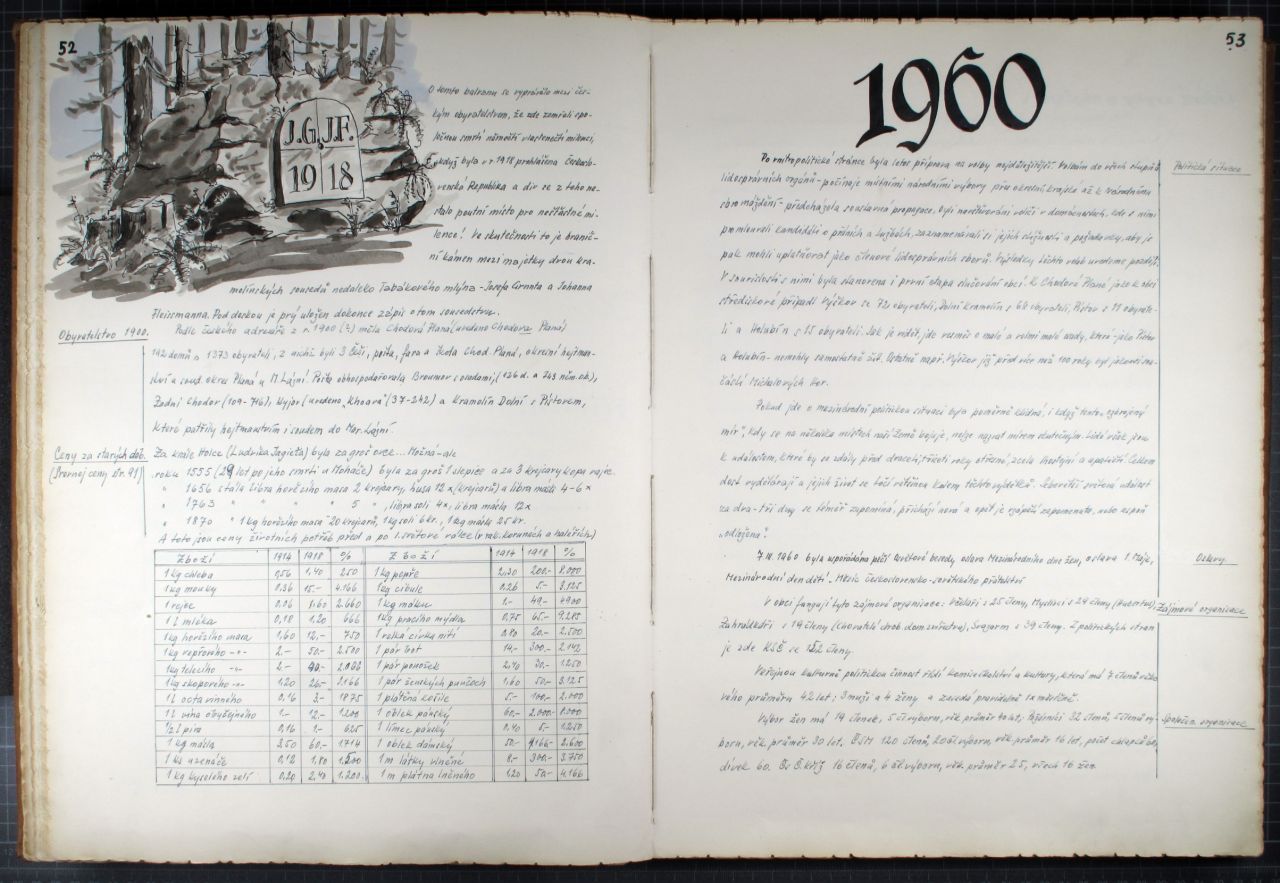 52
J.G. J.F.
19 18
O tomto balvanu se vyprávělo mezi čes-
kým obyvatelstvem, že zde zemřeli spo-
lečnou smrtí němečtí vlastenečtí milenci,
když byla v r 1918 prohlášena Českoslo-
venská Republika a div se z toho ne-
stalo poutní místo pro nešťastné mi-
lence! Ve skutečnosti to je hranič-
ní kámen mezi majetky dvou kra-
molínských sousedů nedaleko Tabákového mlýna - Josefa Grunta a Johanna
Fleissmanna. Pod deskou je prý uložen dokonce zápis o tom sousedstvu.
Obyvatelstvo 1900.
Podle českého adresáře z r. 1900 (?) měla Chodová Planá (uvedeno Chodova Planá)
142 domů a 1373 obyvatelů, z nichž byli 3 Češi, pošta, fara a škola Chod. Planá, okresní hejtman-
ství a soud. okres Planá u M. Lázní. Pošta obhospodařovala Broumov s osadami, (126 d. a 743 něm. ob),
Zadní Chodov (109-716), Kyjov (uvedeno "Khoava" (37-242) a Kramolín Dolní s Pístovem,
které patřily hejtmanstvím i soudem do Mar. Lázní.
Ceny za starých dob.
(Srovnej ceny str. 91)
Za krále Holce (Ludvíka Jagieła) byla za groš ovce... Možná - ale
roku 1555 (29 let po jeho smrti u Moháče) byla za groš 1 slepice a za 3 krejcary kopa vajec
" 1656 stála libra hovězího masa 2 krejcary, husa 12 x (krejcarů) a libra másla 4-6 x
" 1763 " " " " 5 " , libra soli 4x, libra másla 12 x
" 1870 " 1 kg hovězího masa 20 krejcarů, 1 kg soli 6 kr., 1 kg másla 25 kr.
A toto jsou ceny životních potřeb před a po 1. světové válce (v rak. korunách a haléřích)
Zboží 1914 1918 % Zboží 1914 1918 %
1 kg chleba 0,56 1,40 250 1 kg pepře 2,30 200.- 8.000
1 kg mouky 0.36 15.- 4.166 1 kg cibule 0.26 5.- 3.125
1 vejce 0.06 1,60 2.660 1 kg máku 1.- 49.- 4900
1 l mléka 0,18 1.20 666 1 kg pracího mýdla 0,75 65.- 9.215
1 kg hovězího masa 1,60 12,- 750 1 velká cívka nití 0.80 20.- 2.500
1 kg vepřového -"- 2.- 50.- 2.500 1 pár bot 14.- 300.- 2.142
1 kg telecího -"- 2.- 1 pár ponožek 2,40 30.- 1.250
1 kg skopového -"- 1,20 26.- 2.166 1 pár ženských punčoch 1,60 50.- 3.125
1 l octa vinného 0,16 3.- 1875 1 plátěná košile 5.- 100.- 2.000
1 l vína obyčejného 1.- 12.- 1.200 1 oblek pánský 60.- 2.000.-
1/2 l piva 0,16 1.- 625 1 límec pánský 0.40 5.- 1.250
1 kg másla 3.50 60.- 1714 1 oblek dámský 50.- 2.600
1 ks uzenáče 0,12 1,80 1.500 1 m látky vlněné 8.- 300.- 3.750
1 kg kyselého zelí 0,20 2,40 1.200.- 1 m plátna lněného 1,20 50.- 4.166
53
1960
Po vnitropolitické stránce byla letos příprava na volby nejdůležitější. Volbám do všech stupňů
Politická situace
lidosprávních orgánů - počínaje místními národními výbory přes okresní, krajské až k Národnímu
shromáždění - předcházela soustavná propagace. Byli navštěvováni voliči v domácnostech, kde s nimi
promlouvali kandidáti o plánech a službách, zaznamenávali si jejich stížnosti a požadavky, aby je
pak mohli uplatňovat jako členové lidosprávních sborů. Výsledky těchto voleb uvedeme později.
V souvislosti s nimi byla stanovena i první etapa slučování obcí. K Chodové Plané jako k obci
střediskové připadl Výškov se 72 obyvateli, Dolní Kramolín s 68 obyvateli, Pístov s 11 obyvate-
li a Holubín s 15 obyvateli. Jak je vidět, jde vesměs o malé a velmi malé osady, které - jako Pístov
a Holubín - nemohly samostatně žít. Ostatně např. Výškov již před více než 100 roky byl jakousi sou-
částí Michalových Hor.
Pokud jde o mezinárodní politickou situaci byla poměrně klidná, i když tento "ozbrojený
mír", kdy se na několika místech naší Země bojuje, nelze nazvat mírem skutečným. Lidé však jsou
k událostem, které by se zdály před dvaceti, třiceti roky otřesné, zcela lhostejní a apatičtí. Celkem
dost vydělávají a jejich život se točí většinou kolem těchto výdělků. Sebevětší světová událost
za dva - tři dny se téměř zapomíná, přichází nová a opět je zájem zapomenuto, nebo aspoň
"odloženo".
7. III. 1960 byla uspořádána péčí Osvětové besedy oslava Mezinárodního dne žen, oslava 1. Máje,
Oslavy
Mezinárodní den dětí, Měsíc československo-sovětského přátelství
V obci fungují tyto zájmové organizace: Včelaři s 25 členy, Myslivci s 29 členy (Hubertus),
Zájmové organizace
Zahrádkáři s 19 členy (Chovatelé drob. dom. zvířectva), Svazarm s 39 členy. Z politických stran
je zde KSČ se 152 členy.
Veřejnou kulturně politickou činnost řídí komise školství a kultury, která má 7 členů věko-
vého průměru 42 let; 3 muži a 4 ženy a zasedá pravidelně 1x měsíčně.
Výbor žen má 19 členek, 5 čl. výboru, věk. průměr 40 let; Požárníci 32 členů, 5 členů vý-
Společen. organizace
boru, věk. průměr 30 let. ČSM 120 členů, 20 čl. výboru, věk. průměr 16 let, počet chlapců 60,
dívek 60. Čs. Č. kříž 16 členů, 6 čl. výboru, věk. průměr 25, všech 16 žen.